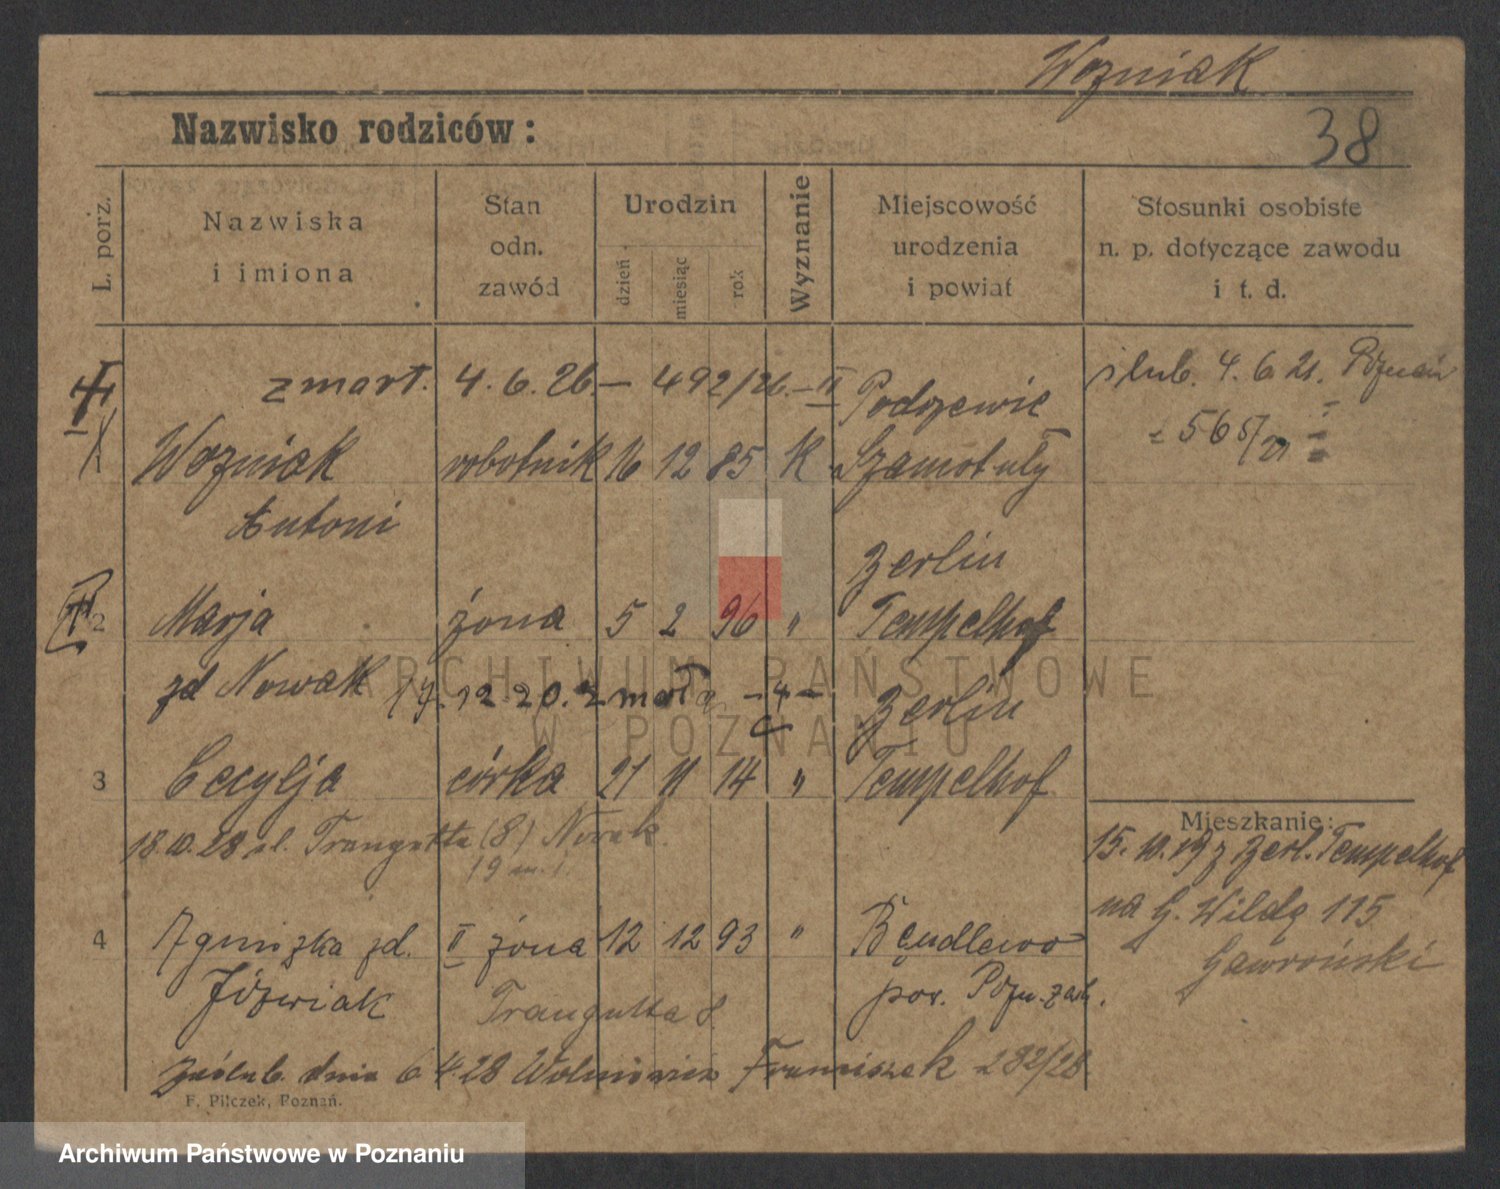 Wozniak
Nazwisko rodziców:
38
L. porż.
Nazwiska
i imiona
Stan
odn.
zawód
Urodzin
dzień
miesiąc
rok
Wyznanie
Miejscowość
urodzenia
i powiat
Stosunki osobiste
n. p. dotyczące zawodu
i t. d.
zmarł. 4.6.26.— 492/26.—II
Podrzewie
ślub. 4.6.21. Poznań
565/21
1 Wozniak robotnik 16 12 85 K Szamotuły
Antoni
Berlin
2 Marja żona 5 2 96 " Tempelhof
zd Nowak 17.12.20. zmarła —4—
Berlin
3 Cecylja córka 21 11 14 " Tempelhof
18.10.28 ul. Traugutta (8) Nowak
19 m.
Mieszkanie:
15.10.19 z Berl. Tempelhof
na G. Wildę 115
Gawroński
4 Agnieszka zd. II żona 12 12 93 " Będlewo
Jóźwiak Traugutta 8. pow. Pozn. zach.
zaślub. dnia 6.4.28 Franciszek 282/28
F. Pilczek, Poznań.
ARCHIWUM PAŃSTWOWE
W POZNANIU
Archiwum Państwowe w Poznaniu